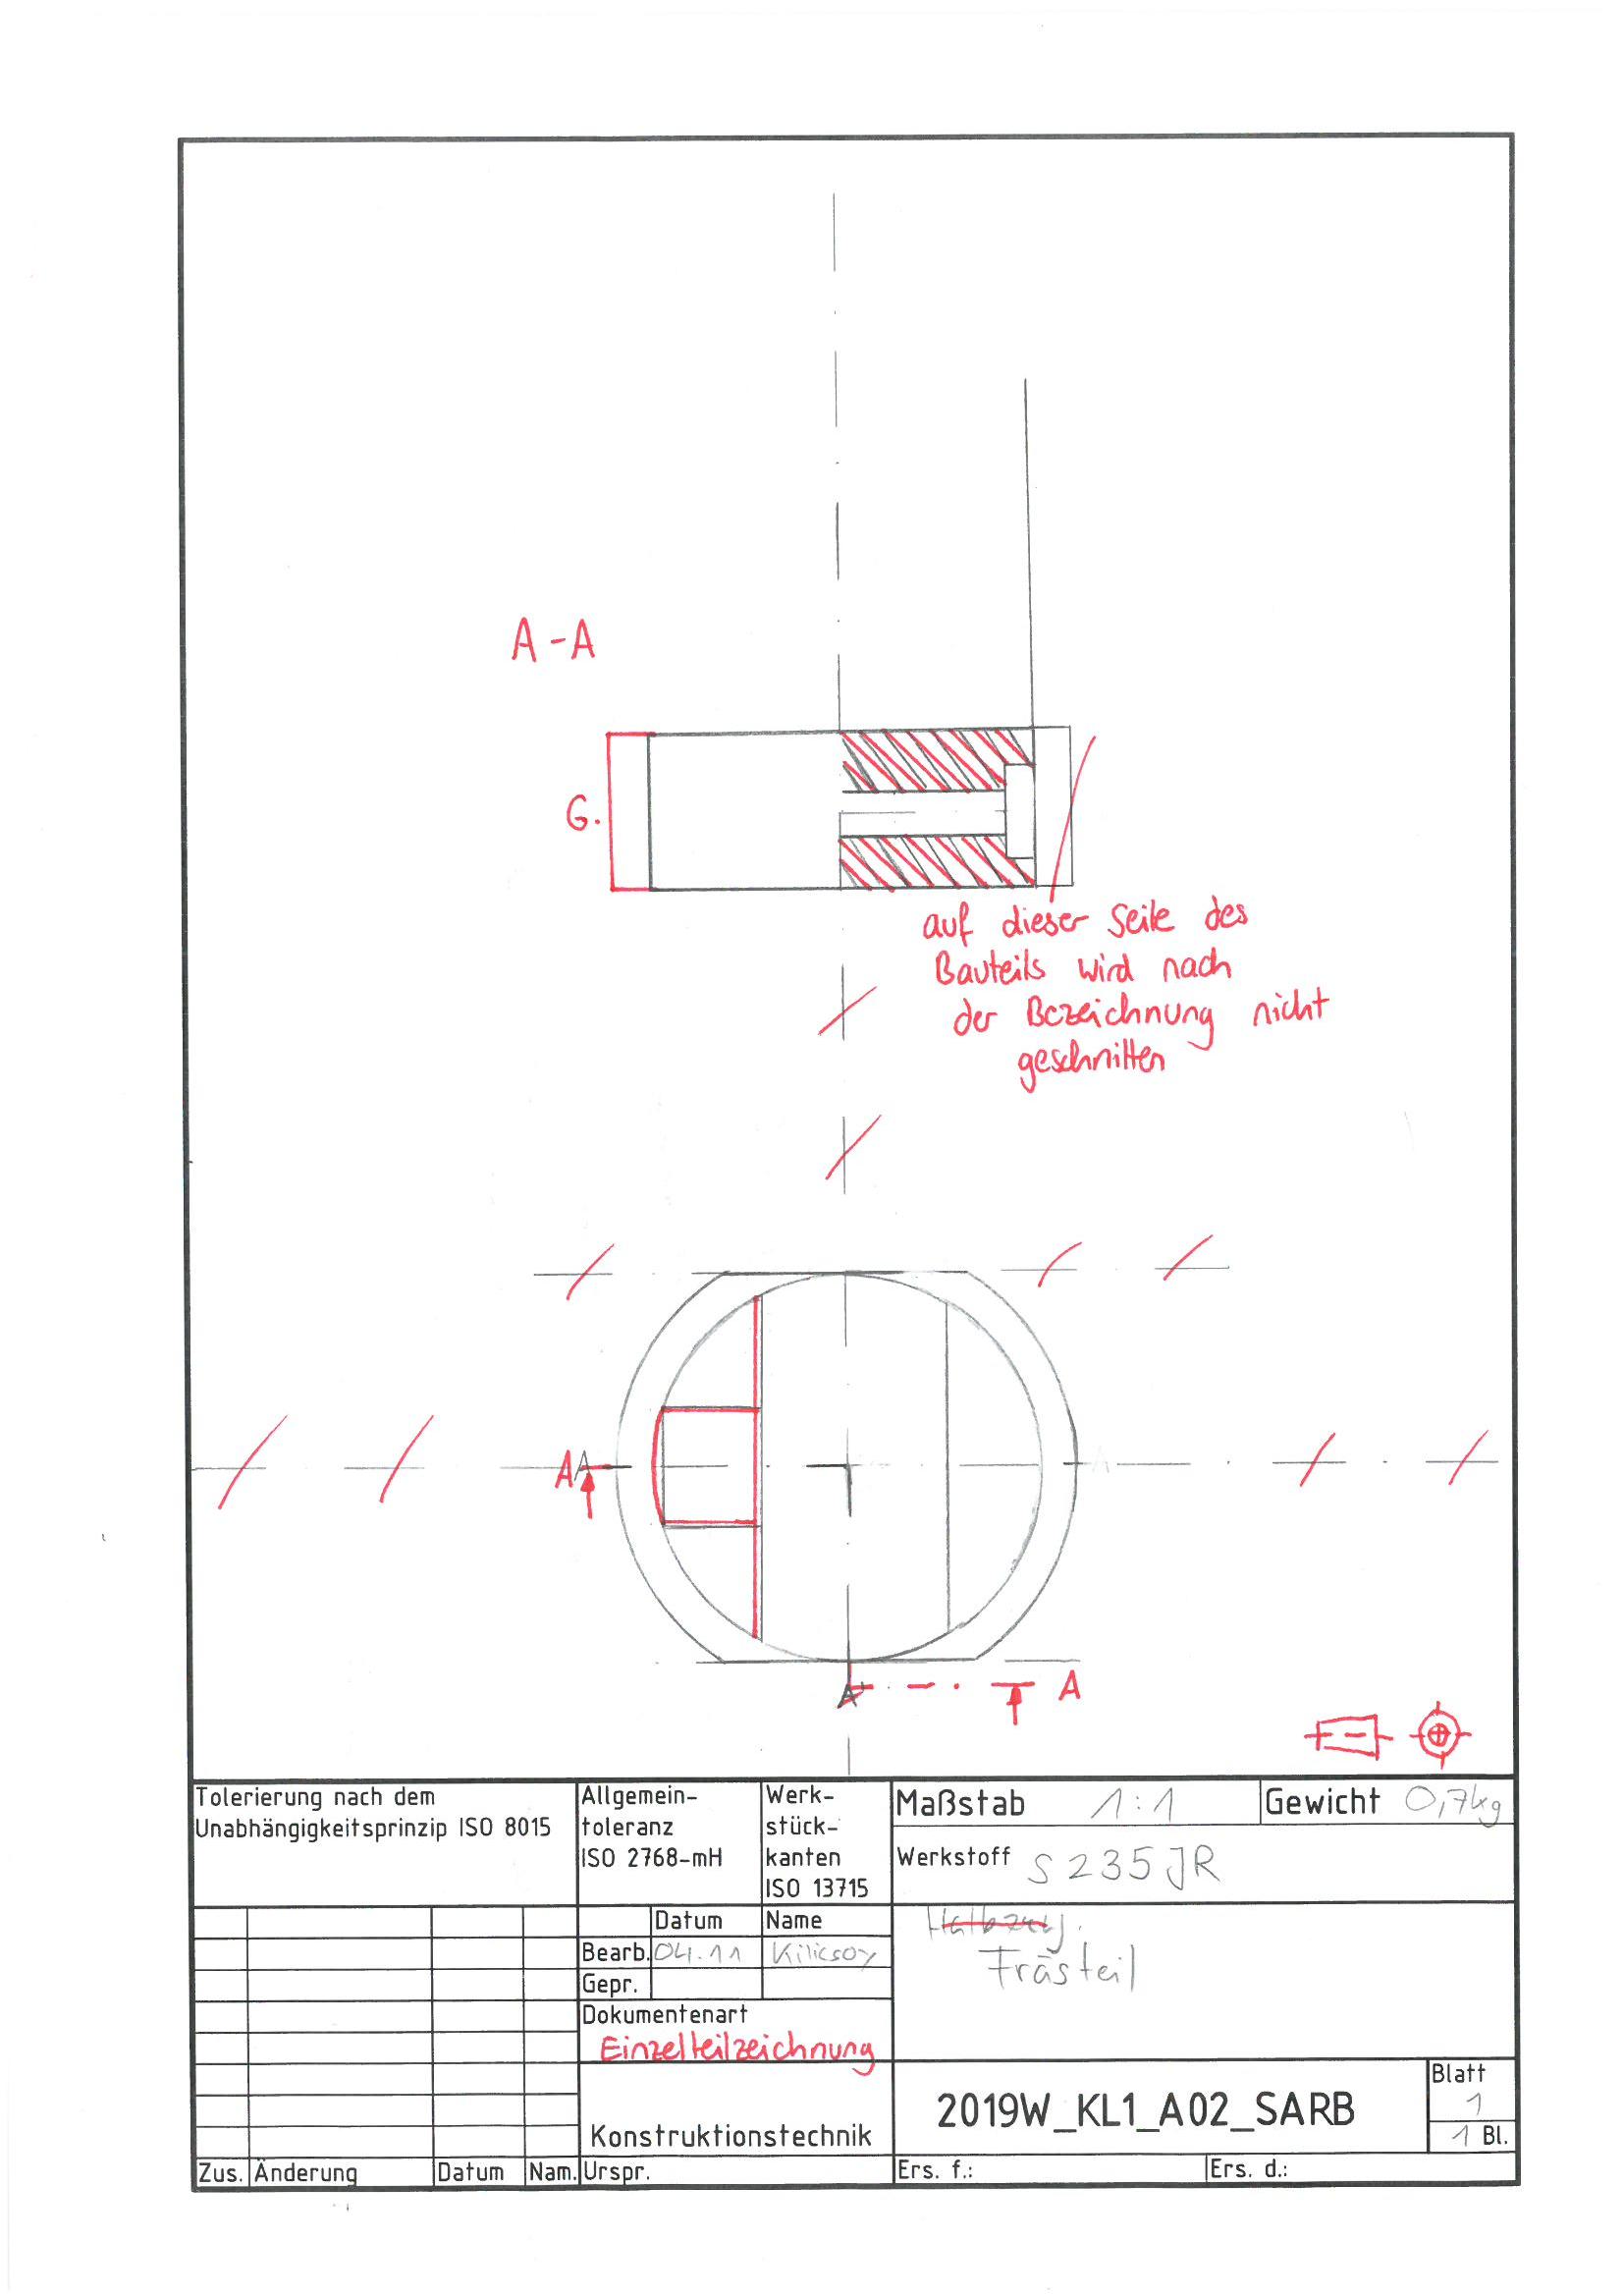 A-A
G.
auf dieser Seite des
Bauteils wird nach
der Bezeichnung nicht
geschnitten
A A
A
A A
Tolerierung nach dem
Unabhängigkeitsprinzip ISO 8015
Allgemein-
toleranz
ISO 2768-mH
Werk-
stück-
kanten
ISO 13715
Maßstab 1:1
Gewicht 0,7kg
Werkstoff S235JR
Datum Name
Bearb. 04.11 Kilicsoy
Gepr.
Frästeil
Dokumentenart
Einzelteilzeichnung
Konstruktionstechnik
2019W_KL1_A02_SARB
Blatt
1
1 Bl.
Zus. Änderung Datum Nam. Urspr. Ers. f.: Ers. d.: